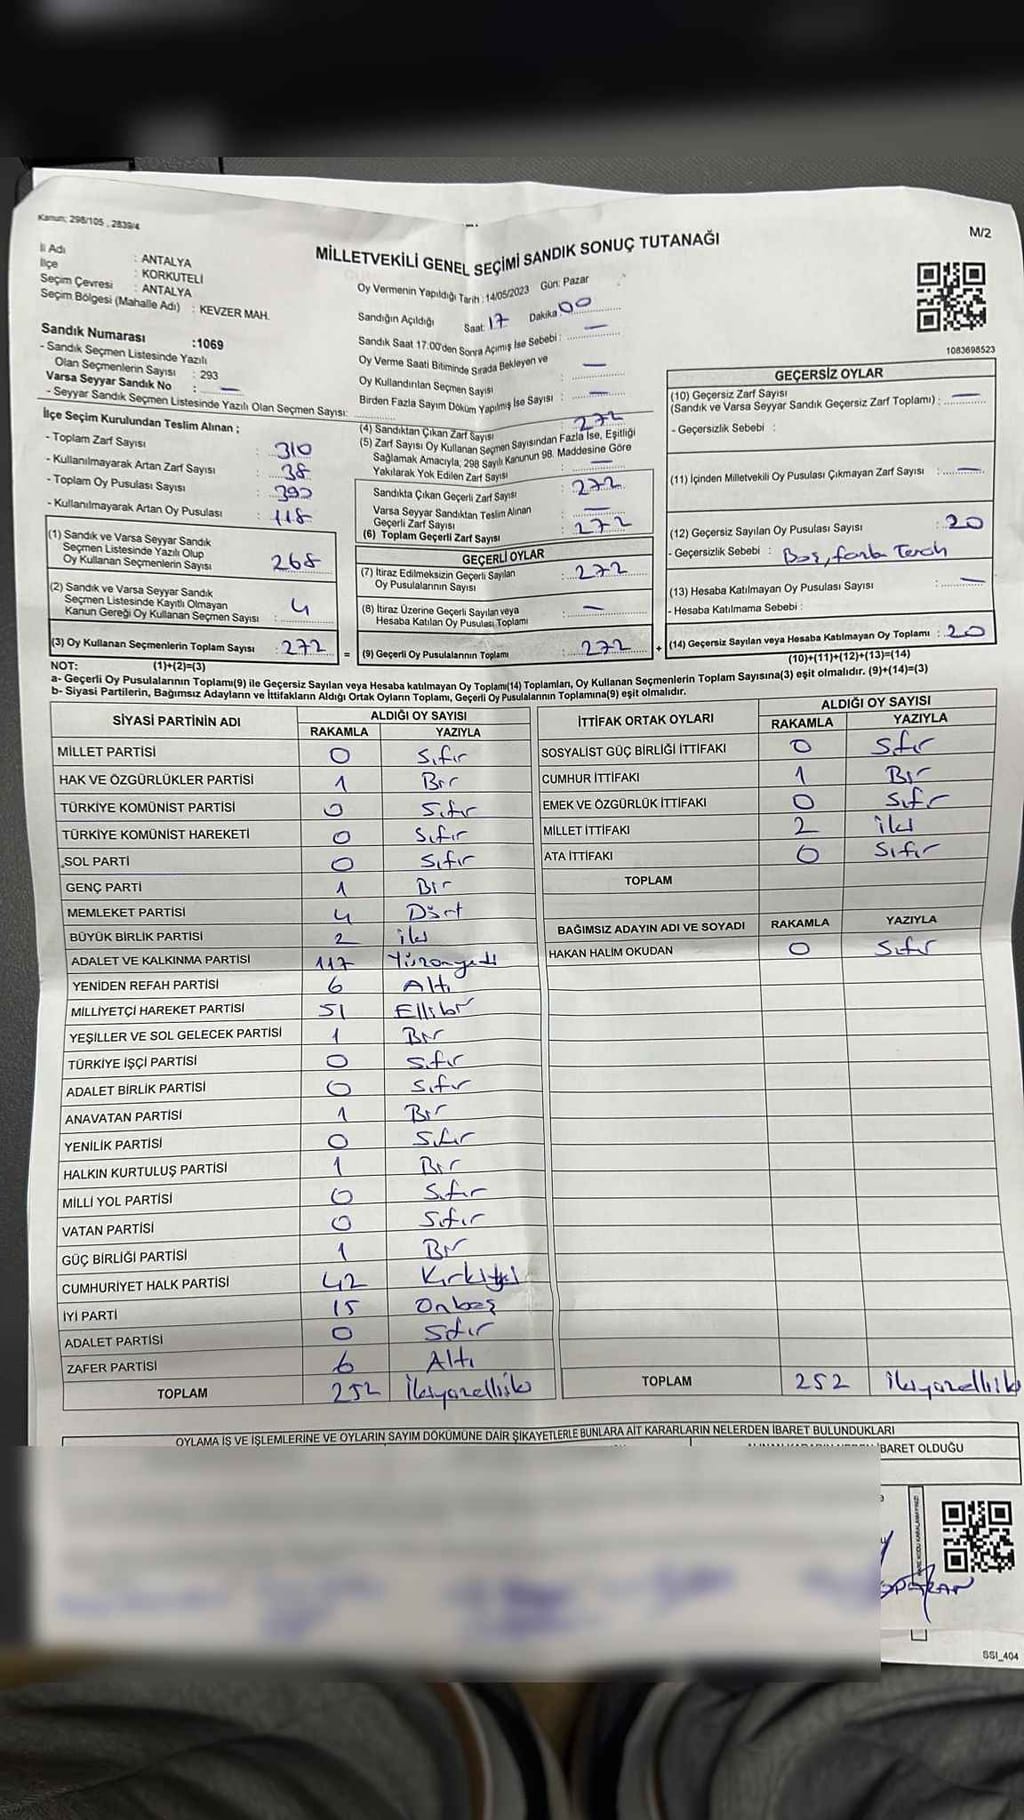 Kanun: 298/105 , 2839/4
M/2
MİLLETVEKİLİ GENEL SEÇİMİ SANDIK SONUÇ TUTANAĞI
İl Adı : ANTALYA
İlçe : KORKUTELİ
Seçim Çevresi : ANTALYA
Seçim Bölgesi (Mahalle Adı) : KEVZER MAH.
Sandık Numarası :1069
- Sandık Seçmen Listesinde Yazılı
Olan Seçmenlerin Sayısı : 293
Varsa Seyyar Sandık No : —
- Seyyar Sandık Seçmen Listesinde Yazılı Olan Seçmen Sayısı:
Oy Vermenin Yapıldığı Tarih : 14/05/2023 Gün: Pazar
Sandığın Açıldığı Saat: 17 Dakika: 00
Sandık Saat 17:00'den Sonra Açımış İse Sebebi : —
Oy Verme Saati Bitiminde Sırada Bekleyen ve
Oy Kullandırılan Seçmen Sayısı : —
Birden Fazla Sayım Döküm Yapılmış İse Sayısı : —
1083698523
İlçe Seçim Kurulundan Teslim Alınan ;
- Toplam Zarf Sayısı : 310
- Kullanılmayarak Artan Zarf Sayısı : 38
- Toplam Oy Pusulası Sayısı : 390
- Kullanılmayarak Artan Oy Pusulası : 118
(1) Sandık ve Varsa Seyyar Sandık
Seçmen Listesinde Yazılı Olup
Oy Kullanan Seçmenlerin Sayısı : 268
(2) Sandık ve Varsa Seyyar Sandık
Seçmen Listesinde Kayıtlı Olmayan
Kanun Gereği Oy Kullanan Seçmen Sayısı : 4
(3) Oy Kullanan Seçmenlerin Toplam Sayısı : 272
(4) Sandıktan Çıkan Zarf Sayısı : 272
(5) Zarf Sayısı Oy Kullanan Seçmen Sayısından Fazla İse, Eşitliği
Sağlamak Amacıyla, 298 Sayılı Kanunun 98. Maddesine Göre
Yakılarak Yok Edilen Zarf Sayısı : —
Sandıkta Çıkan Geçerli Zarf Sayısı : 272
Varsa Seyyar Sandıktan Teslim Alınan
Geçerli Zarf Sayısı : —
(6) Toplam Geçerli Zarf Sayısı : 272
GEÇERLİ OYLAR
(7) İtiraz Edilmeksizin Geçerli Sayılan
Oy Pusulalarının Sayısı : 272
(8) İtiraz Üzerine Geçerli Sayılan veya
Hesaba Katılan Oy Pusulası Toplamı : —
= (9) Geçerli Oy Pusulalarının Toplamı : 272
GEÇERSİZ OYLAR
(10) Geçersiz Zarf Sayısı
(Sandık ve Varsa Seyyar Sandık Geçersiz Zarf Toplamı) : —
- Geçersizlik Sebebi :
(11) İçinden Milletvekili Oy Pusulası Çıkmayan Zarf Sayısı : —
(12) Geçersiz Sayılan Oy Pusulası Sayısı : 20
- Geçersizlik Sebebi : Boş, fazla Tercih
(13) Hesaba Katılmayan Oy Pusulası Sayısı : —
- Hesaba Katılmama Sebebi :
+ (14) Geçersiz Sayılan veya Hesaba Katılmayan Oy Toplamı : 20
NOT: (1)+(2)=(3)
(10)+(11)+(12)+(13)=(14)
a- Geçerli Oy Pusulalarının Toplamı(9) ile Geçersiz Sayılan veya Hesaba katılmayan Oy Toplamı(14) Toplamları, Oy Kullanan Seçmenlerin Toplam Sayısına(3) eşit olmalıdır. (9)+(14)=(3)
b- Siyasi Partilerin, Bağımsız Adayların ve İttifakların Aldığı Ortak Oyların Toplamı, Geçerli Oy Pusulalarının Toplamına(9) eşit olmalıdır.
SİYASİ PARTİNİN ADI ALDIĞI OY SAYISI
RAKAMLA YAZIYLA
MİLLET PARTİSİ 0 Sıfır
HAK VE ÖZGÜRLÜKLER PARTİSİ 1 Bir
TÜRKİYE KOMÜNİST PARTİSİ 0 Sıfır
TÜRKİYE KOMÜNİST HAREKETİ 0 Sıfır
SOL PARTİ 0 Sıfır
GENÇ PARTİ 1 Bir
MEMLEKET PARTİSİ 4 Dört
BÜYÜK BİRLİK PARTİSİ 2 iki
ADALET VE KALKINMA PARTİSİ 117 Yüzonyedi
YENİDEN REFAH PARTİSİ 6 Altı
MİLLİYETÇİ HAREKET PARTİSİ 51 Ellibir
YEŞİLLER VE SOL GELECEK PARTİSİ 1 Bir
TÜRKİYE İŞÇİ PARTİSİ 0 Sıfır
ADALET BİRLİK PARTİSİ 0 Sıfır
ANAVATAN PARTİSİ 1 Bir
YENİLİK PARTİSİ 0 Sıfır
HALKIN KURTULUŞ PARTİSİ 1 Bir
MİLLİ YOL PARTİSİ 0 Sıfır
VATAN PARTİSİ 0 Sıfır
GÜÇ BİRLİĞİ PARTİSİ 1 Bir
CUMHURİYET HALK PARTİSİ 42 Kırkiki
İYİ PARTİ 15 Onbeş
ADALET PARTİSİ 0 Sıfır
ZAFER PARTİSİ 6 Altı
TOPLAM 252 İkiyüzelliiki
İTTİFAK ORTAK OYLARI ALDIĞI OY SAYISI
RAKAMLA YAZIYLA
SOSYALİST GÜÇ BİRLİĞİ İTTİFAKI 0 Sıfır
CUMHUR İTTİFAKI 1 Bir
EMEK VE ÖZGÜRLÜK İTTİFAKI 0 Sıfır
MİLLET İTTİFAKI 2 iki
ATA İTTİFAKI 0 Sıfır
TOPLAM
BAĞIMSIZ ADAYIN ADI VE SOYADI RAKAMLA YAZIYLA
HAKAN HALİM OKUDAN 0 Sıfır
TOPLAM 252 İkiyüzelliiki
OYLAMA İŞ VE İŞLEMLERİNE VE OYLARIN SAYIM DÖKÜMÜNE DAİR ŞİKAYETLERLE BUNLARA AİT KARARLARIN NELERDEN İBARET BULUNDUKLARI
İBARET OLDUĞU
SSI_404